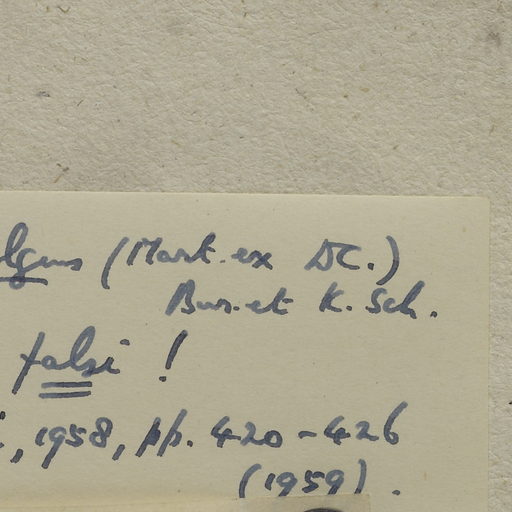 (Mart. ex DC.)
Bur. et K. Sch.
falsi !
, 1958, pp. 420-426
(1959).